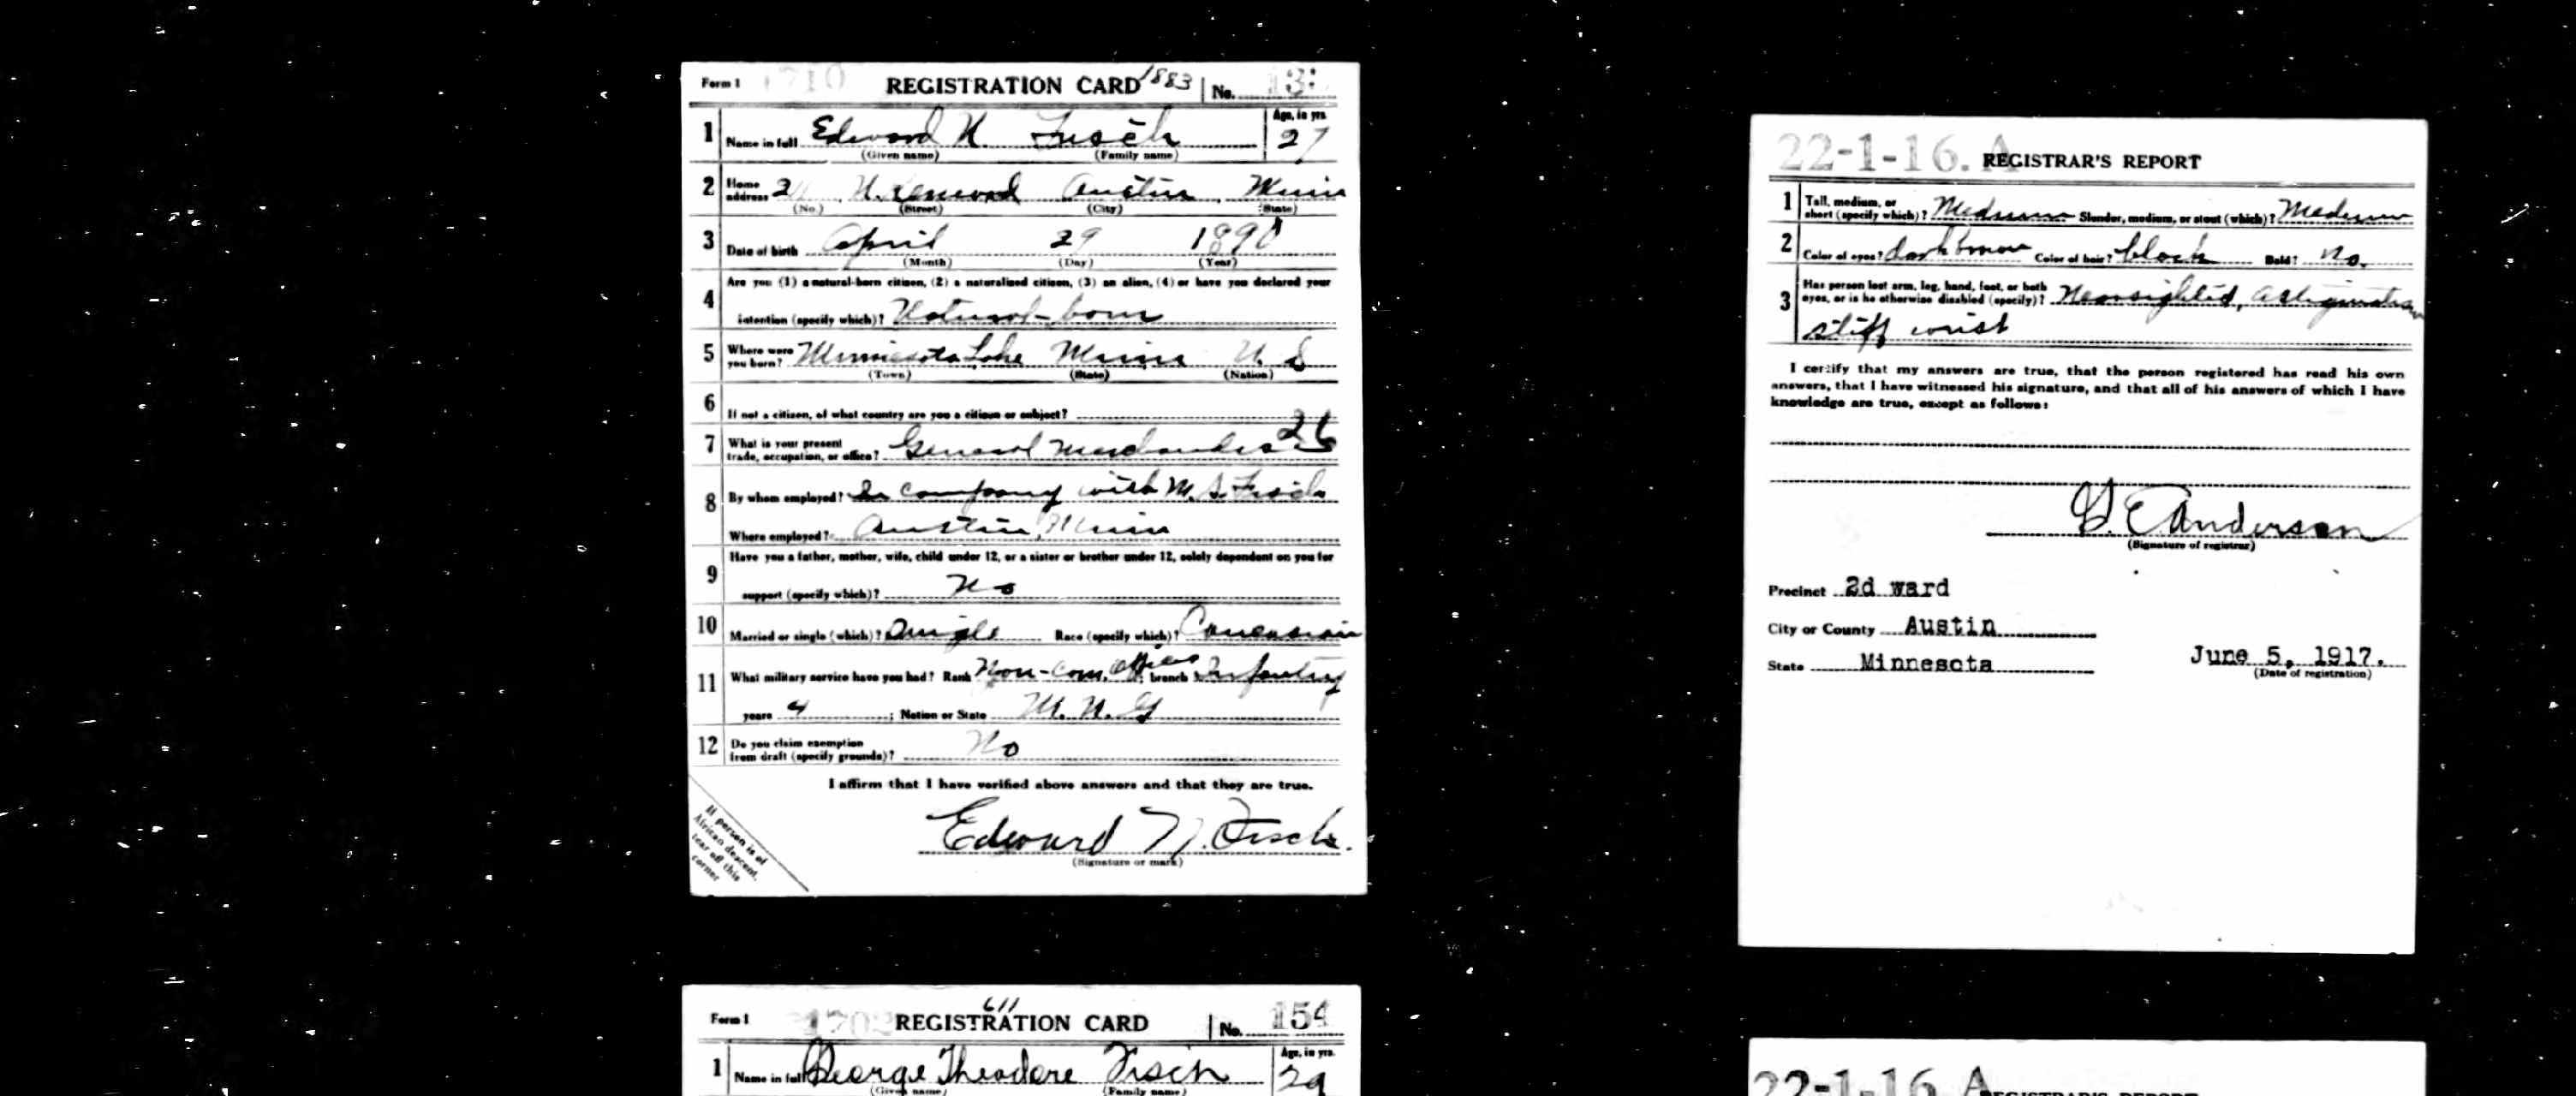 Form 1 1710 REGISTRATION CARD 1883 No. 13
1 Name in full Edward N. Fisch Age, in yrs. 27
(Given name) (Family name)
2 Home address 2 N. Kenwood Austin, Minn
(No.) (Street) (City) (State)
3 Date of birth April 29 1890
(Month) (Day) (Year)
Are you (1) a natural-born citizen, (2) a naturalized citizen, (3) an alien, (4) or have you declared your
4 intention (specify which)? Natural-born
5 Where were you born? Minnesota Lake Minn U. S
(Town) (State) (Nation)
6 If not a citizen, of what country are you a citizen or subject?
7 What is your present trade, occupation, or office? General Merchandise 26
8 By whom employed? In company with M. S. Fisch
Where employed? Austin, Minn
Have you a father, mother, wife, child under 12, or a sister or brother under 12, solely dependent on you for
9 support (specify which)? No
10 Married or single (which)? Single Race (specify which)? Caucasian
11 What military service have you had? Rank Non-com. Officer; branch Infantry
years 4; Nation or State M. N. G
12 Do you claim exemption from draft (specify grounds)? No
I affirm that I have verified above answers and that they are true.
Edward N. Fisch.
(Signature or mark)
If person is of
African descent,
tear off this
corner
22-1-16. A REGISTRAR'S REPORT
1 Tall, medium, or short (specify which)? Medium Slender, medium, or stout (which)? Medium
2 Color of eyes? dark brown Color of hair? black Bald? No.
3 Has person lost arm, leg, hand, foot, or both eyes, or is he otherwise disabled (specify)? Nearsighted, Astigmatism
stiff wrist
I certify that my answers are true, that the person registered has read his own
answers, that I have witnessed his signature, and that all of his answers of which I have
knowledge are true, except as follows:
G. E Anderson
(Signature of registrar)
Precinct 2d ward
City or County Austin
State Minnesota June 5, 1917.
(Date of registration)
Form 1 1702 611 REGISTRATION CARD No. 154
1 Name in full George Theodore Fisch Age, in yrs. 29
(Given name) (Family name)
22-1-16 A REGISTRAR'S REPORT